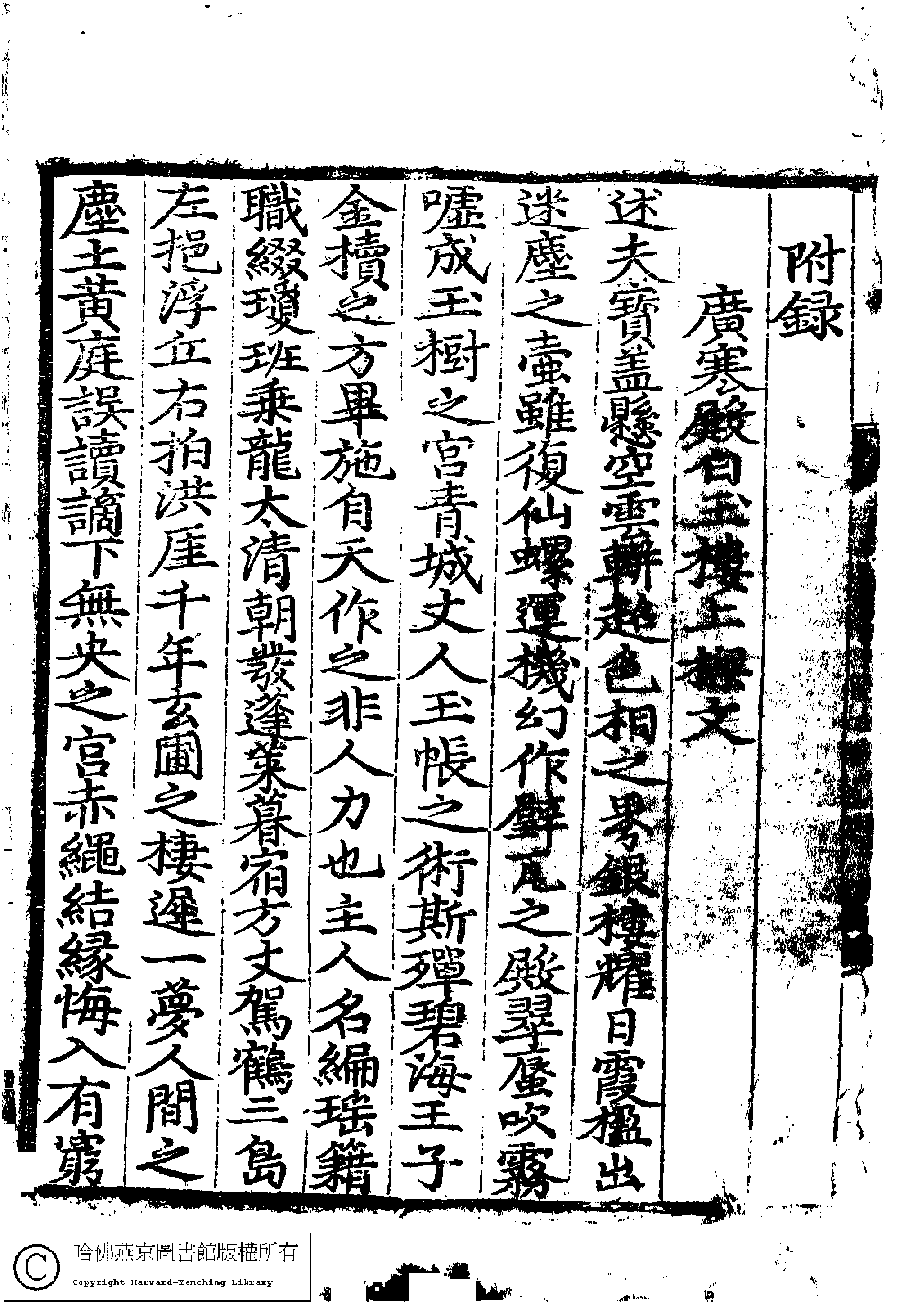 附録
廣寒殿白玉樓上樑文
述夫寶盖懸空雲軿超色相之界銀樓耀日霞楹出
迷塵之壷雖復仙螺運機幻作璧瓦之殿翠蜃吹霧
噓成玉樹之宮青城丈人玉帳之術斯殫碧海王子
金櫝之方畢施自天作之非人力也主人名編瑤籍
職綴瓊班乗龍太清朝發蓬萊暮宿方丈駕鶴三島
左挹浮丘右拍洪厓千年玄圃之棲遲一夢人間之
塵土黄庭誤讀謫下無央之宮赤繩結縁悔入有窮
哈佛燕京圖書館版權所有
Copyright Harvard-Yenching Library